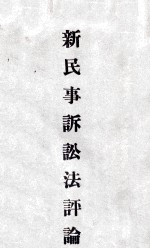 新民事訴訟法評論